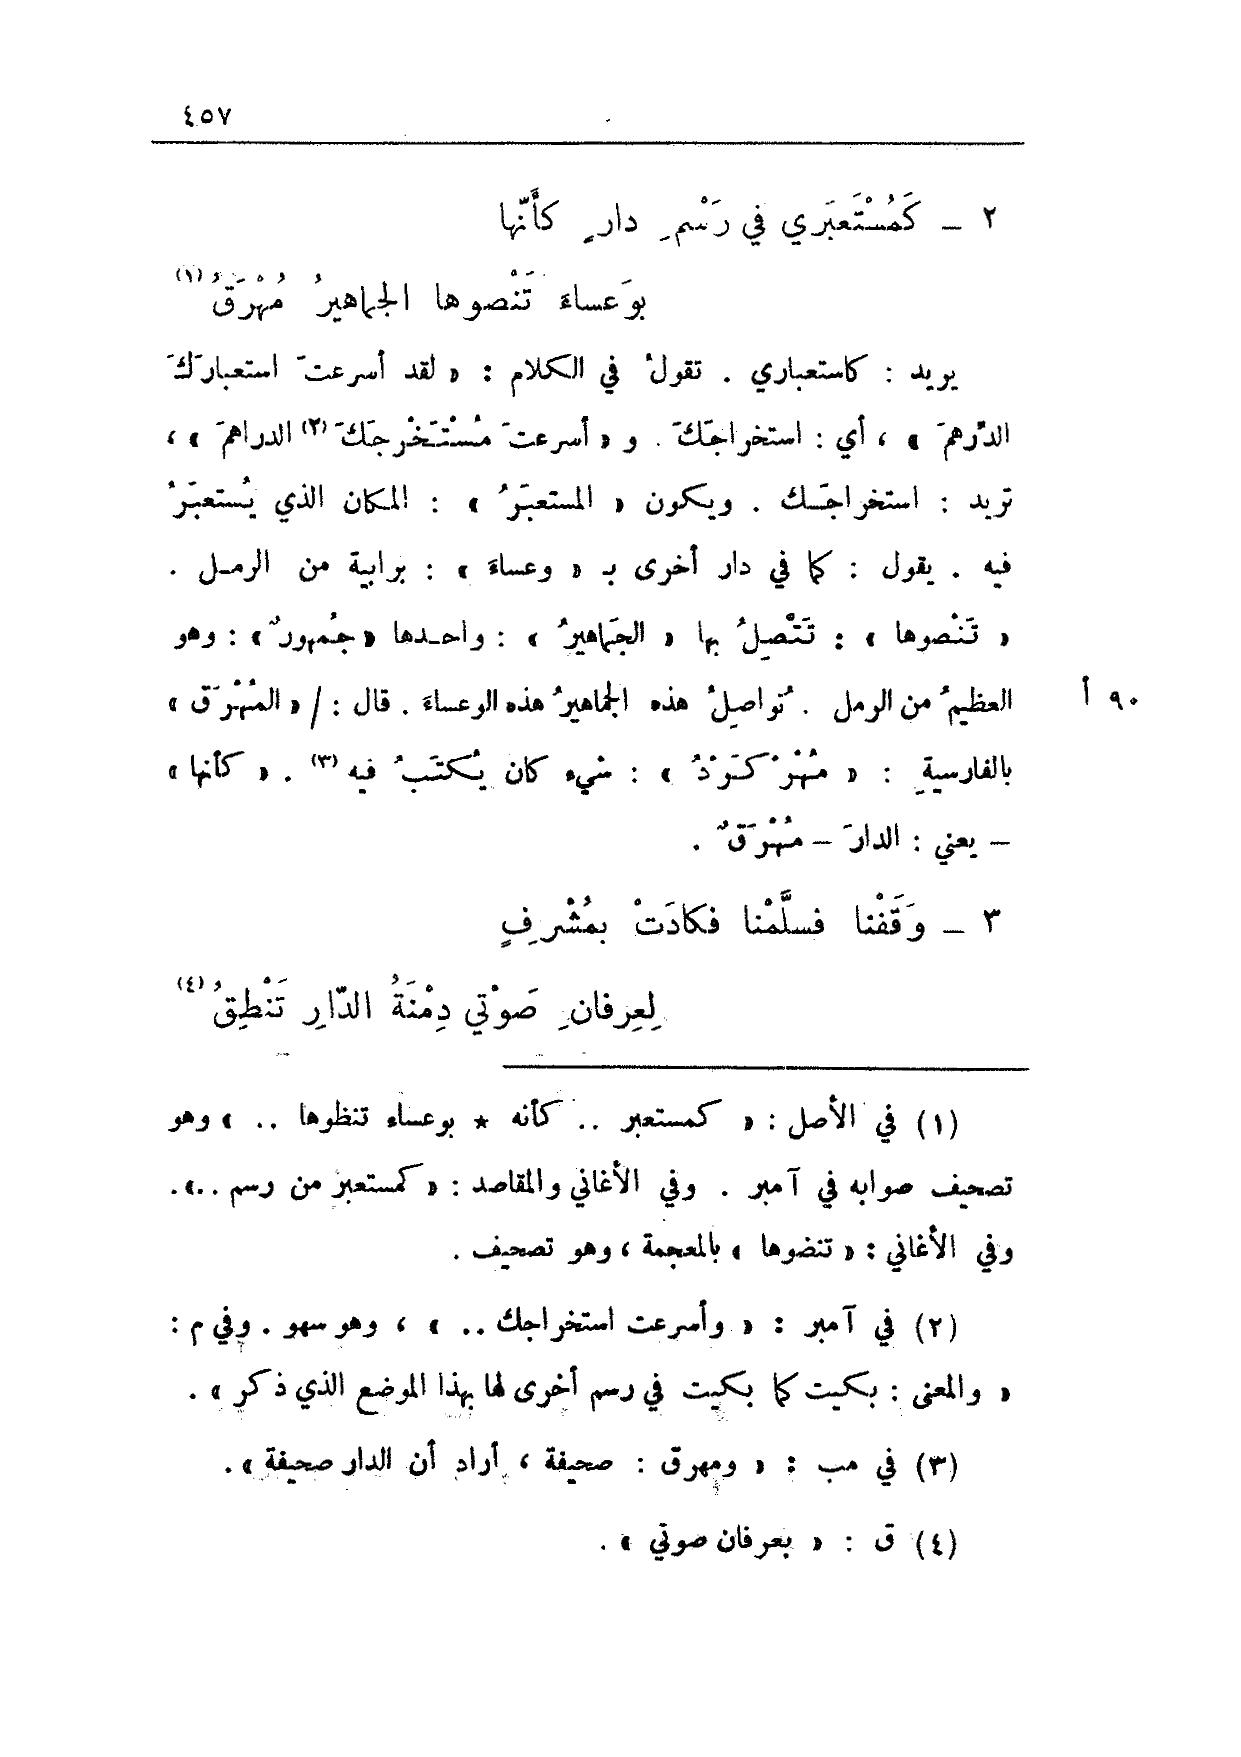 ٤٥٧
٢ – كَمُسْتَعبَري في رَسْمِ دارٍ كأَنّها
بوَعساءَ تَنْصوها الجماهيرُ مُهْرَقُ (١)
يريد : كاستعباري . تقولُ في الكلام : « لقد أسرعتَ استعبارَكَ
الدّرهمَ » ، أي : استخراجَكَ . و « أسرعتَ مُسْتَخْرجَكَ (٢) الدراهمَ » ،
تريد : استخراجَـك . ويكون « المستعبَرُ » : المكان الذي يُستعبَرُ
فيه . يقول : كما في دار أخرى بـ « وعساءَ » : برابية من الرمـل .
« تَنْصوها » : تَتْصِلُ بها « الجَماهيرُ » : واحـدها « جُمهورٌ » : وهو
العظيمُ من الرمل . تُواصِلُ هذه الجماهيرُ هذه الوعساءَ . قال : / « المُهْرَق »
٩٠ أ
بالفارسيةِ : « مُهْرْ كَرْدُ » : شيء كان يُكتَبُ فيه (٣) . « كأنها »
– يعني : الدارَ – مُهْرَقٌ .
٣ – وَقَفْنا فسلَّمْنا فكادَتْ بمُشْرِفٍ
لِعِرفانِ صَوْتي دِمْنَةُ الدّارِ تَنْطِقُ (٤)
(١) في الأصل : « كمستعبر .. كأنه * بوعساء تنظوها .. » وهو
تصحيف صوابه في آمبر . وفي الأغاني والمقاصد : « كمستعبر من رسم .. » .
وفي الأغاني : « تنضوها » بالمعجمة ، وهو تصحيف .
(٢) في آمبر : « وأسرعت استخراجك .. » ، وهو سهو . وفي م :
« والمعنى : بكيت كما بكيت في رسم أخرى لها بهذا الموضع الذي ذكر » .
(٣) في مب : « ومهرق : صحيفة ، أراد أن الدار صحيفة » .
(٤) ق : « بعرفان صوتي » .